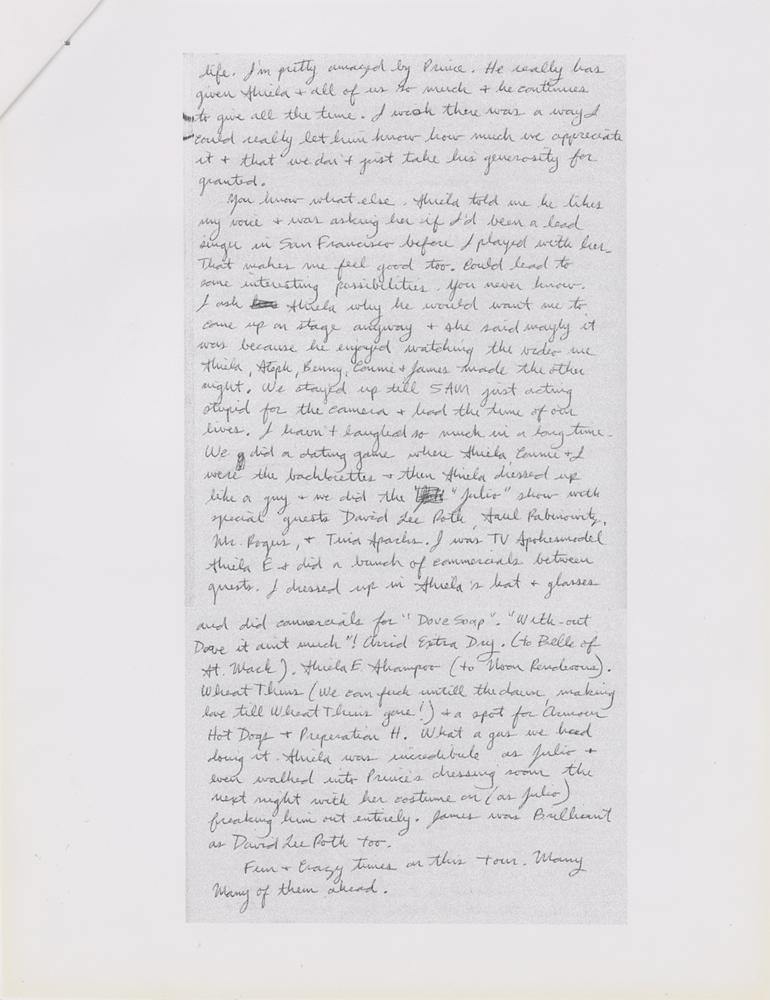 life. I'm pretty amazed by Prince. He really has
given Shiela + all of us so much + he continues
to give all the time. I wish there was a way I
could really let him know how much we appreciate
it + that we don't just take his generosity for
granted.
You know what else. Shiela told me he likes
my voice + was asking her if I'd been a lead
singer in San Francisco before I played with her.
That makes me feel good too. Could lead to
some interesting possibilities. You never know.
I ask Shiela why he would want me to
come up on stage anyway + she said maybe it
was because he enjoyed watching the video me
Shiela, Steph, Benny, Connie + James made the other
night. We stayed up till 5AM just acting
stupid for the camera + had the time of our
lives. I havn't laughed so much in a long time.
We did a dating game where Shiela Connie + I
were the bachlorettes + then Shiela dressed up
like a guy + we did the "Julio" show with
special guests David Lee Roth, Saul Rabinowitz,
Mr. Rogers, + Tina Sparks. I was TV Spokesmodel
Shiela E + did a bunch of commercials between
guests. I dressed up in Shiela's hat + glasses
and did commercials for "Dove Soap". "With-out
Dove it aint much"! Arrid Extra Dry. (to Belle of
St. Mark). Shiela E. Shampoo (to Noon Rendevous).
Wheat Thins (We can fuck untill the dawn, making
love till Wheat Thins gone!) + a spot for Armour
Hot Dogs + Preperation H. What a gas we had
doing it. Shiela was incredibule as Julio +
even walked into Prince's dressing room the
next night with her costume on (as Julio)
freaking him out entirely. James was Brilliant
as David Lee Roth too.
Fun + Crazy times on this tour. Many
Many of them ahead.